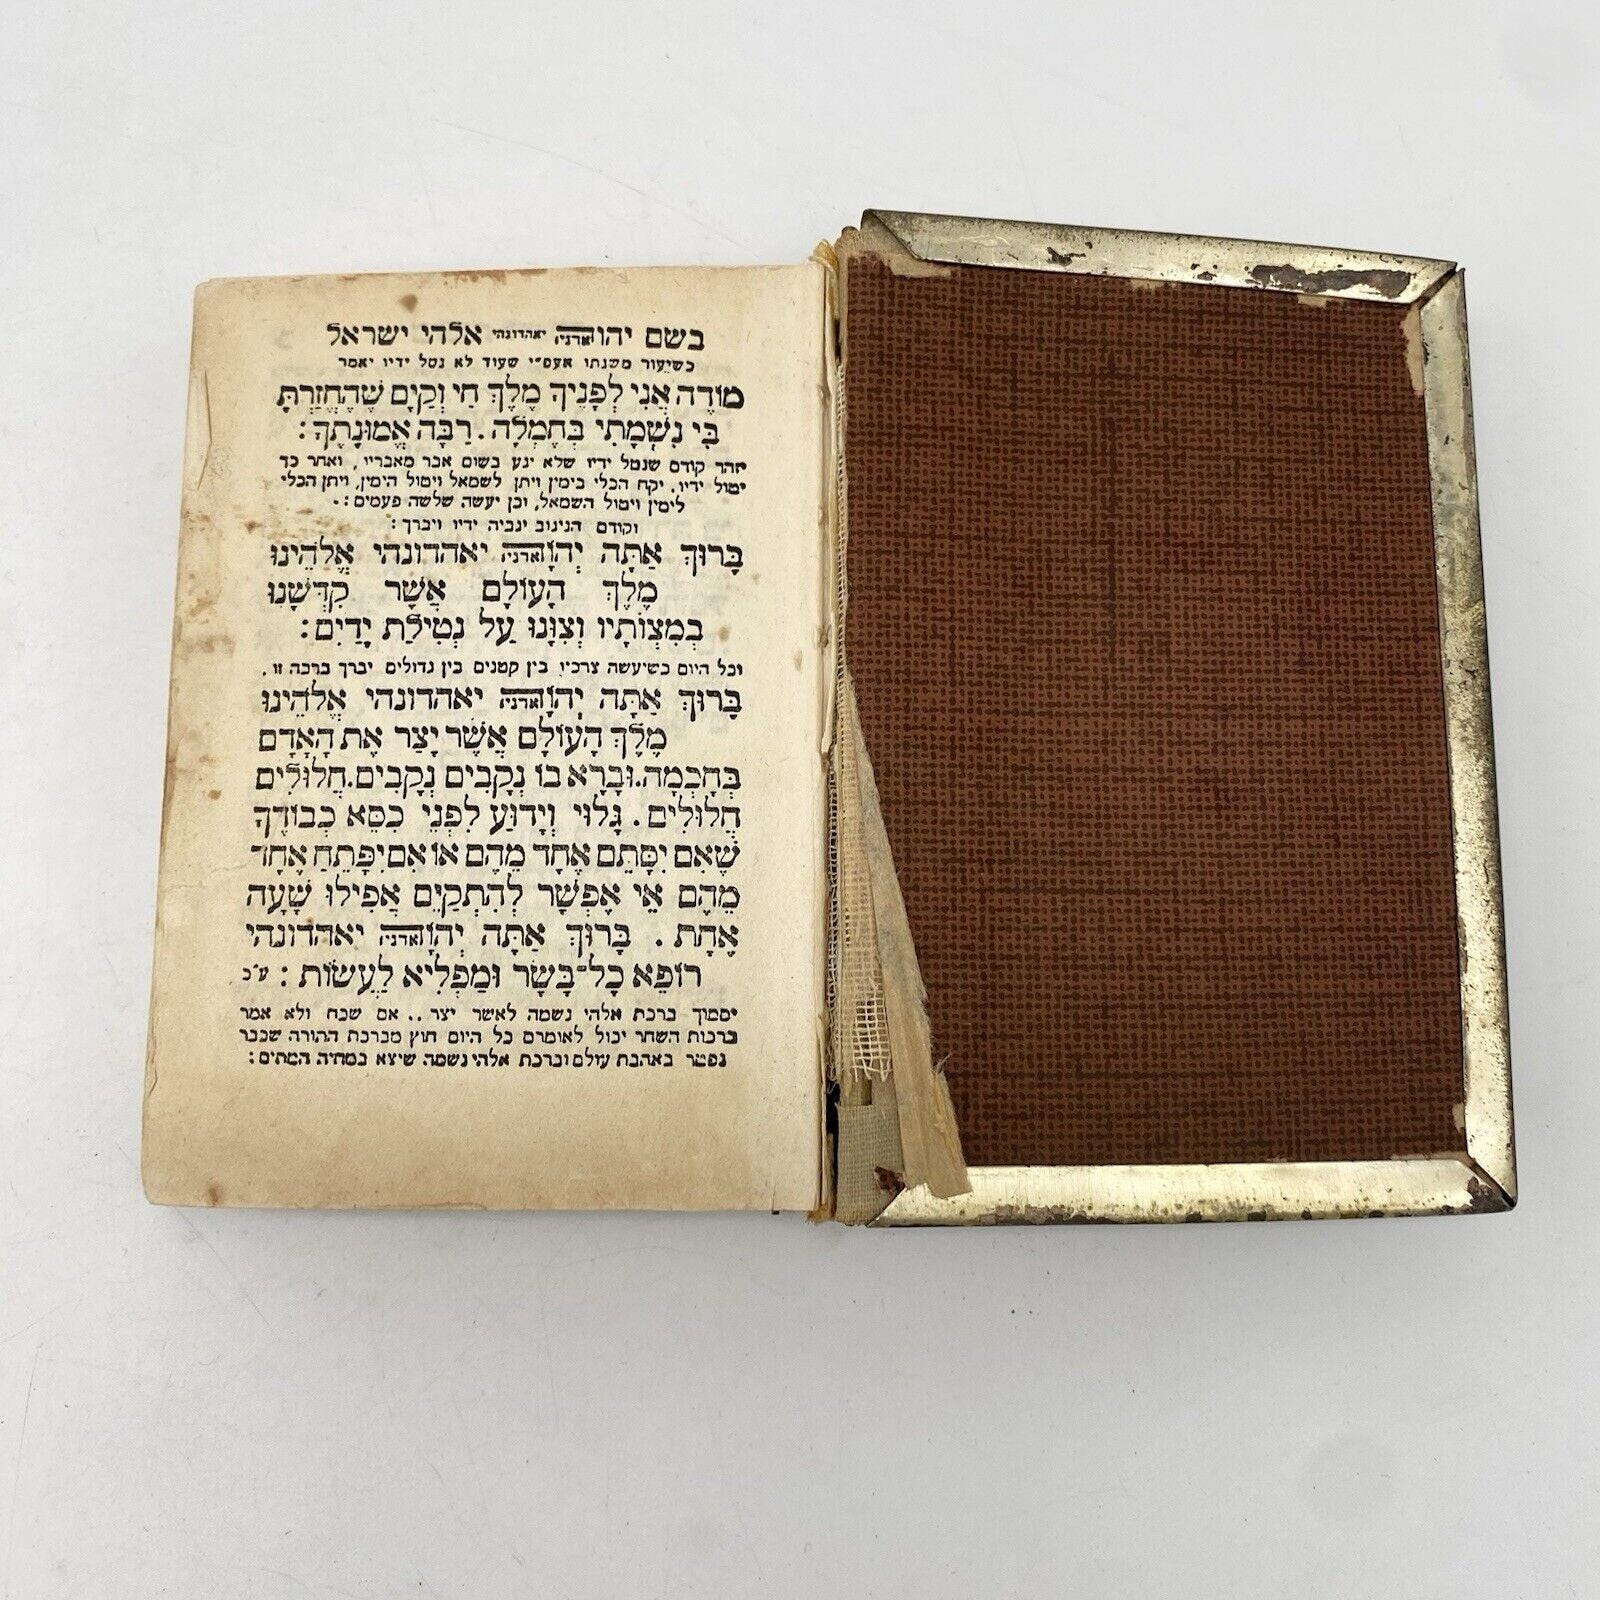 בשם יהוה אדניה יאהדונהי אלהי ישראל
כשיעור משנתו אעפ״י שעוד לא נטל ידיו יאמר
מוֹדֶה אֲנִי לְפָנֶיךָ מֶלֶךְ חַי וְקַיָּם שֶׁהֶחֱזַרְתָּ
בִּי נִשְׁמָתִי בְּחֶמְלָה. רַבָּה אֱמוּנָתֶךָ:
יזהר קודם שנטל ידיו שלא יגע בשום אבר מאבריו, ואחר כך
יטול ידיו. יקח הכלי בימין ויתן לשמאל ויטול הימין, ויתן הכלי
לימין ויטול השמאל, וכן יעשה שלשה פעמים:
וקודם הניגוב יגביה ידיו ויברך:
בָּרוּךְ אַתָּה יְהֹוָה אדניה יאהדונהי אֱלֹהֵינוּ
מֶלֶךְ הָעוֹלָם אֲשֶׁר קִדְּשָׁנוּ
בְּמִצְוֹתָיו וְצִוָּנוּ עַל נְטִילַת יָדַיִם:
וכל היום כשיעשה צרכיו בין קטנים בין גדולים יברך ברכה זו.
בָּרוּךְ אַתָּה יְהֹוָה אדניה יאהדונהי אֱלֹהֵינוּ
מֶלֶךְ הָעוֹלָם אֲשֶׁר יָצַר אֶת הָאָדָם
בְּחָכְמָה. וּבָרָא בוֹ נְקָבִים נְקָבִים. חֲלוּלִים
חֲלוּלִים. גָּלוּי וְיָדוּעַ לִפְנֵי כִסֵּא כְבוֹדֶךָ
שֶׁאִם יִסָּתֵם אֶחָד מֵהֶם אוֹ אִם יִפָּתֵחַ אֶחָד
מֵהֶם אִי אֶפְשָׁר לְהִתְקַיֵּם אֲפִילוּ שָׁעָה
אֶחָת. בָּרוּךְ אַתָּה יְהֹוָה אדניה יאהדונהי
רוֹפֵא כָל־בָּשָׂר וּמַפְלִיא לַעֲשׂוֹת: ע״כ
יסמוך ברכת אלהי נשמה לאשר יצר.. אם שכח ולא אמר
ברכות השחר יכול לאומרם כל היום חוץ מברכת התורה שכבר
נפטר באהבת עולם וברכת אלהי נשמה שיצא במחיה המתים: